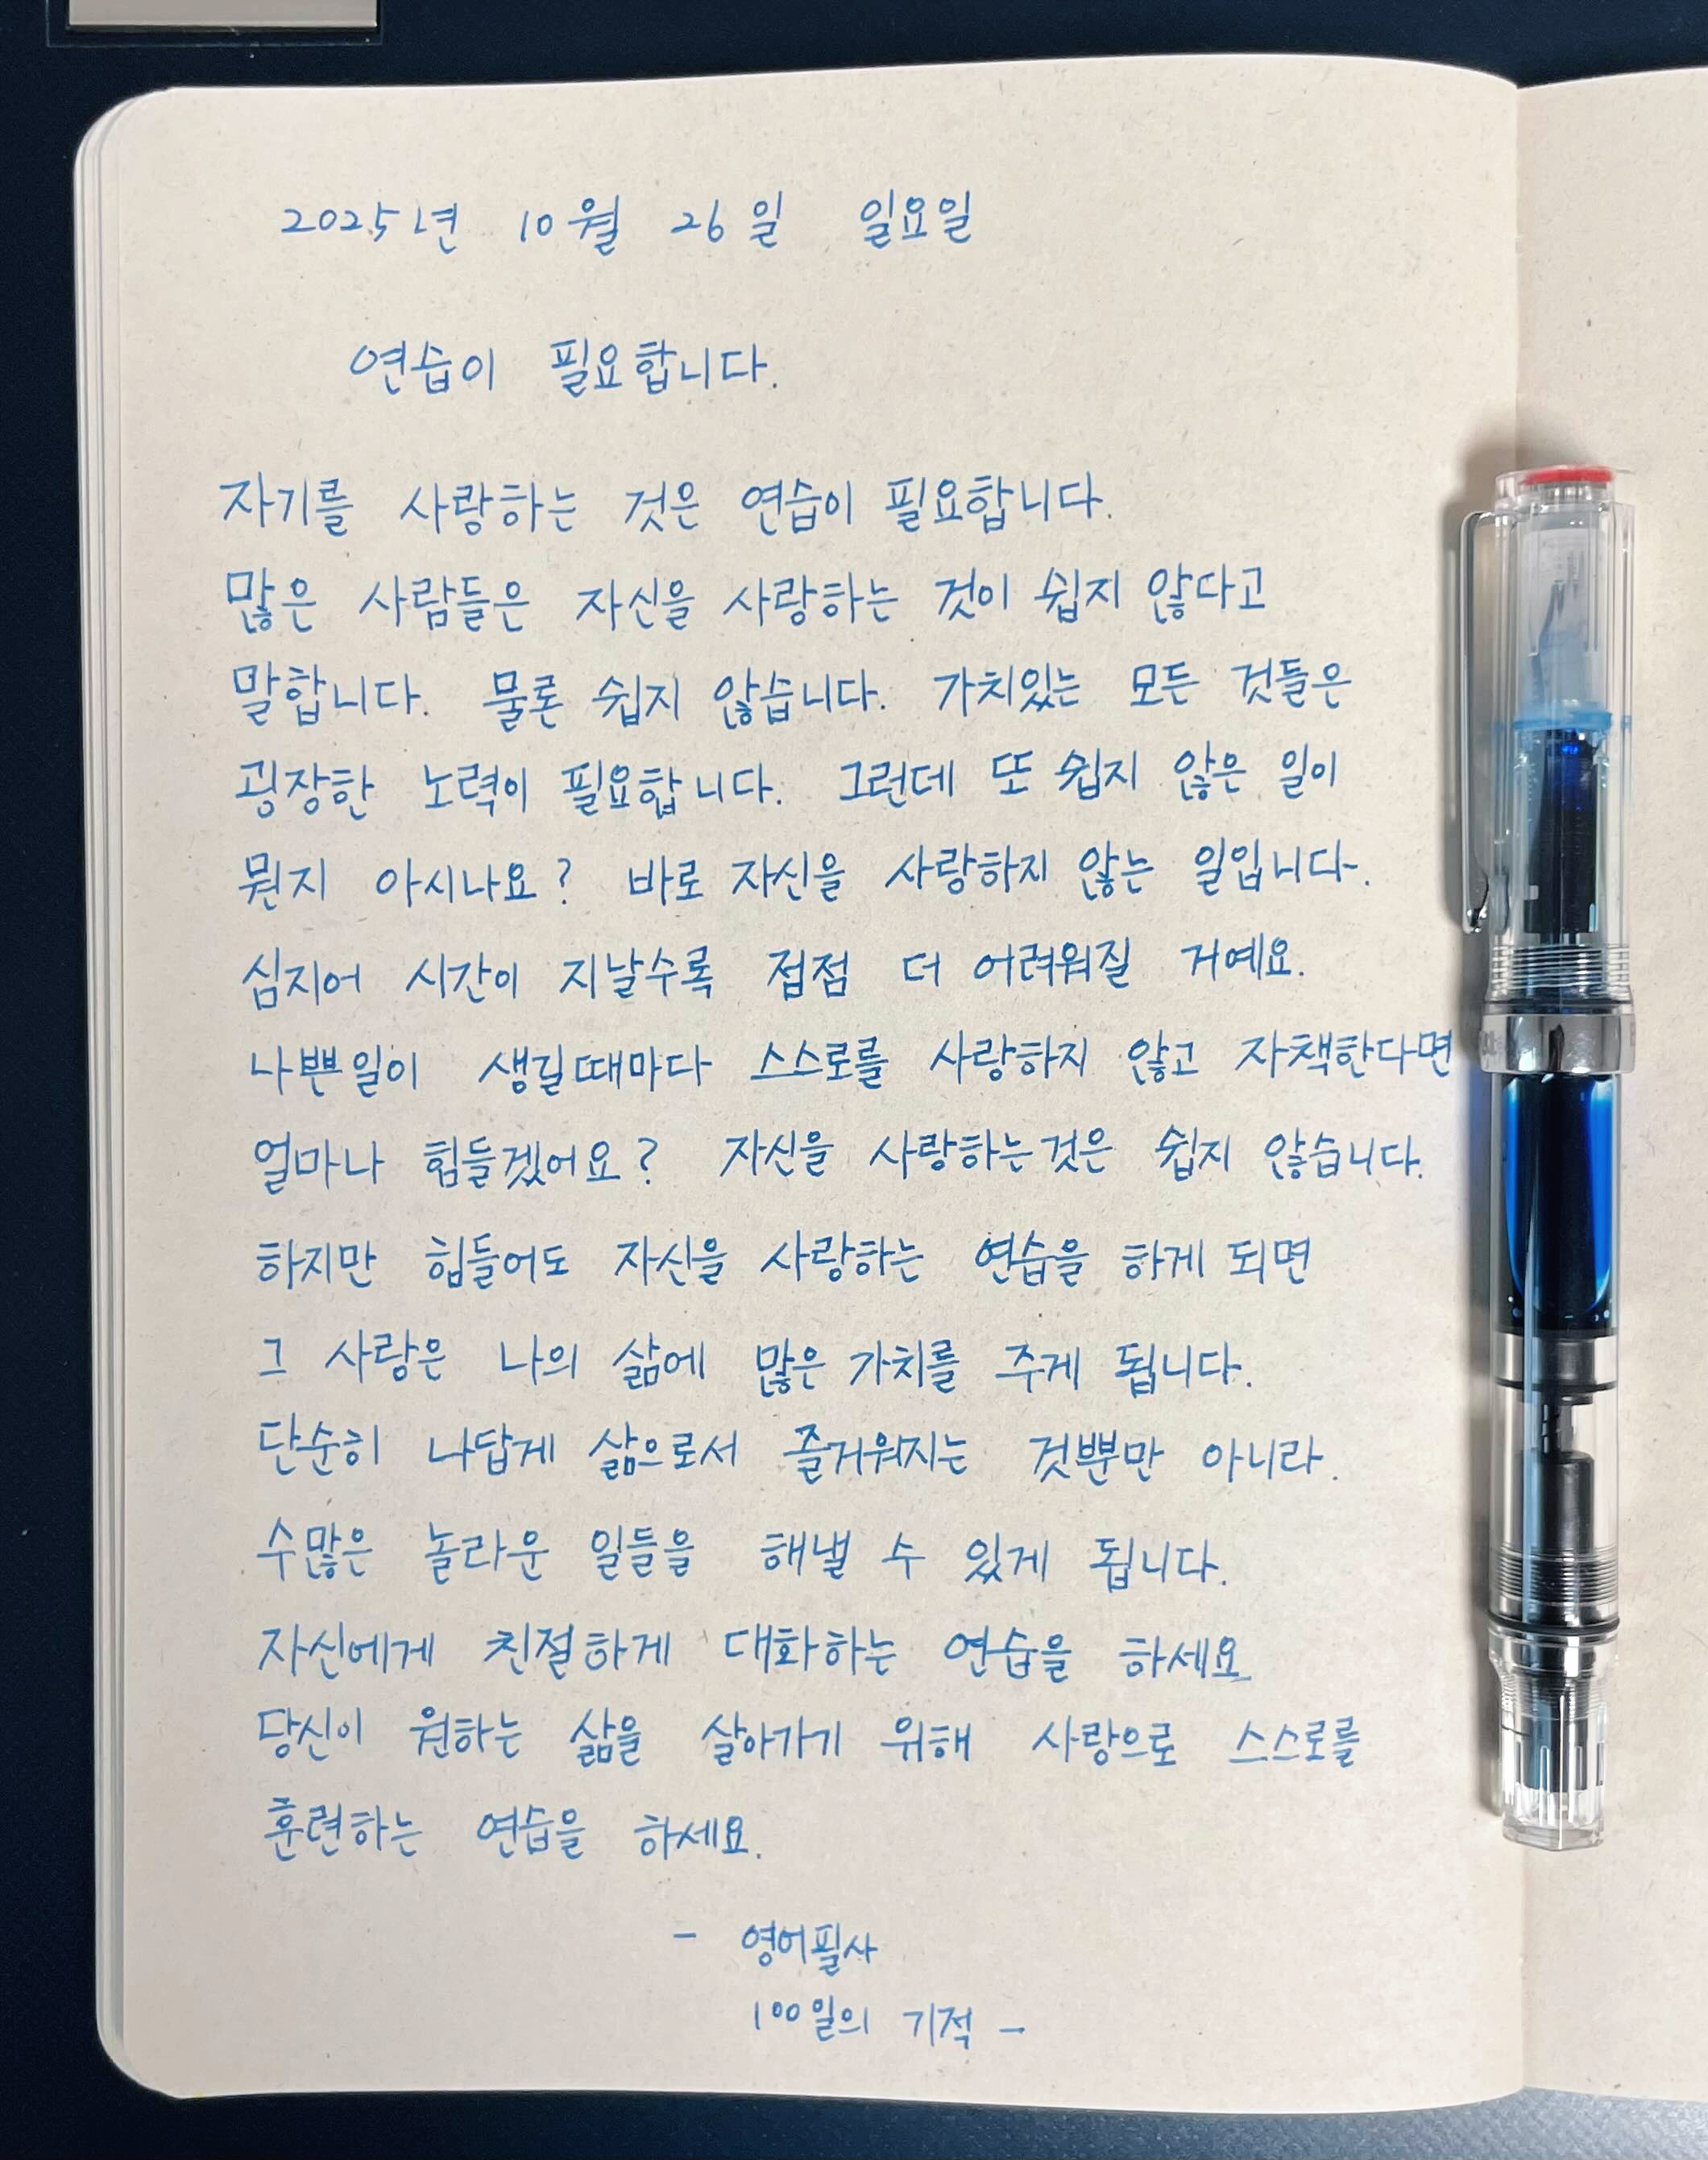 2025년 10월 26일 일요일
연습이 필요합니다.
자기를 사랑하는 것은 연습이 필요합니다.
많은 사람들은 자신을 사랑하는 것이 쉽지 않다고
말합니다. 물론 쉽지 않습니다. 가치있는 모든 것들은
굉장한 노력이 필요합니다. 그런데 또 쉽지 않은 일이
뭔지 아시나요? 바로 자신을 사랑하지 않는 일입니다.
심지어 시간이 지날수록 점점 더 어려워질 거예요.
나쁜일이 생길때마다 스스로를 사랑하지 않고 자책한다면
얼마나 힘들겠어요? 자신을 사랑하는것은 쉽지 않습니다.
하지만 힘들어도 자신을 사랑하는 연습을 하게 되면
그 사랑은 나의 삶에 많은 가치를 주게 됩니다.
단순히 나답게 삶으로서 즐거워지는 것뿐만 아니라.
수많은 놀라운 일들을 해낼 수 있게 됩니다.
자신에게 친절하게 대화하는 연습을 하세요
당신이 원하는 삶을 살아가기 위해 사랑으로 스스로를
훈련하는 연습을 하세요.
- 영어필사
100일의 기적 -